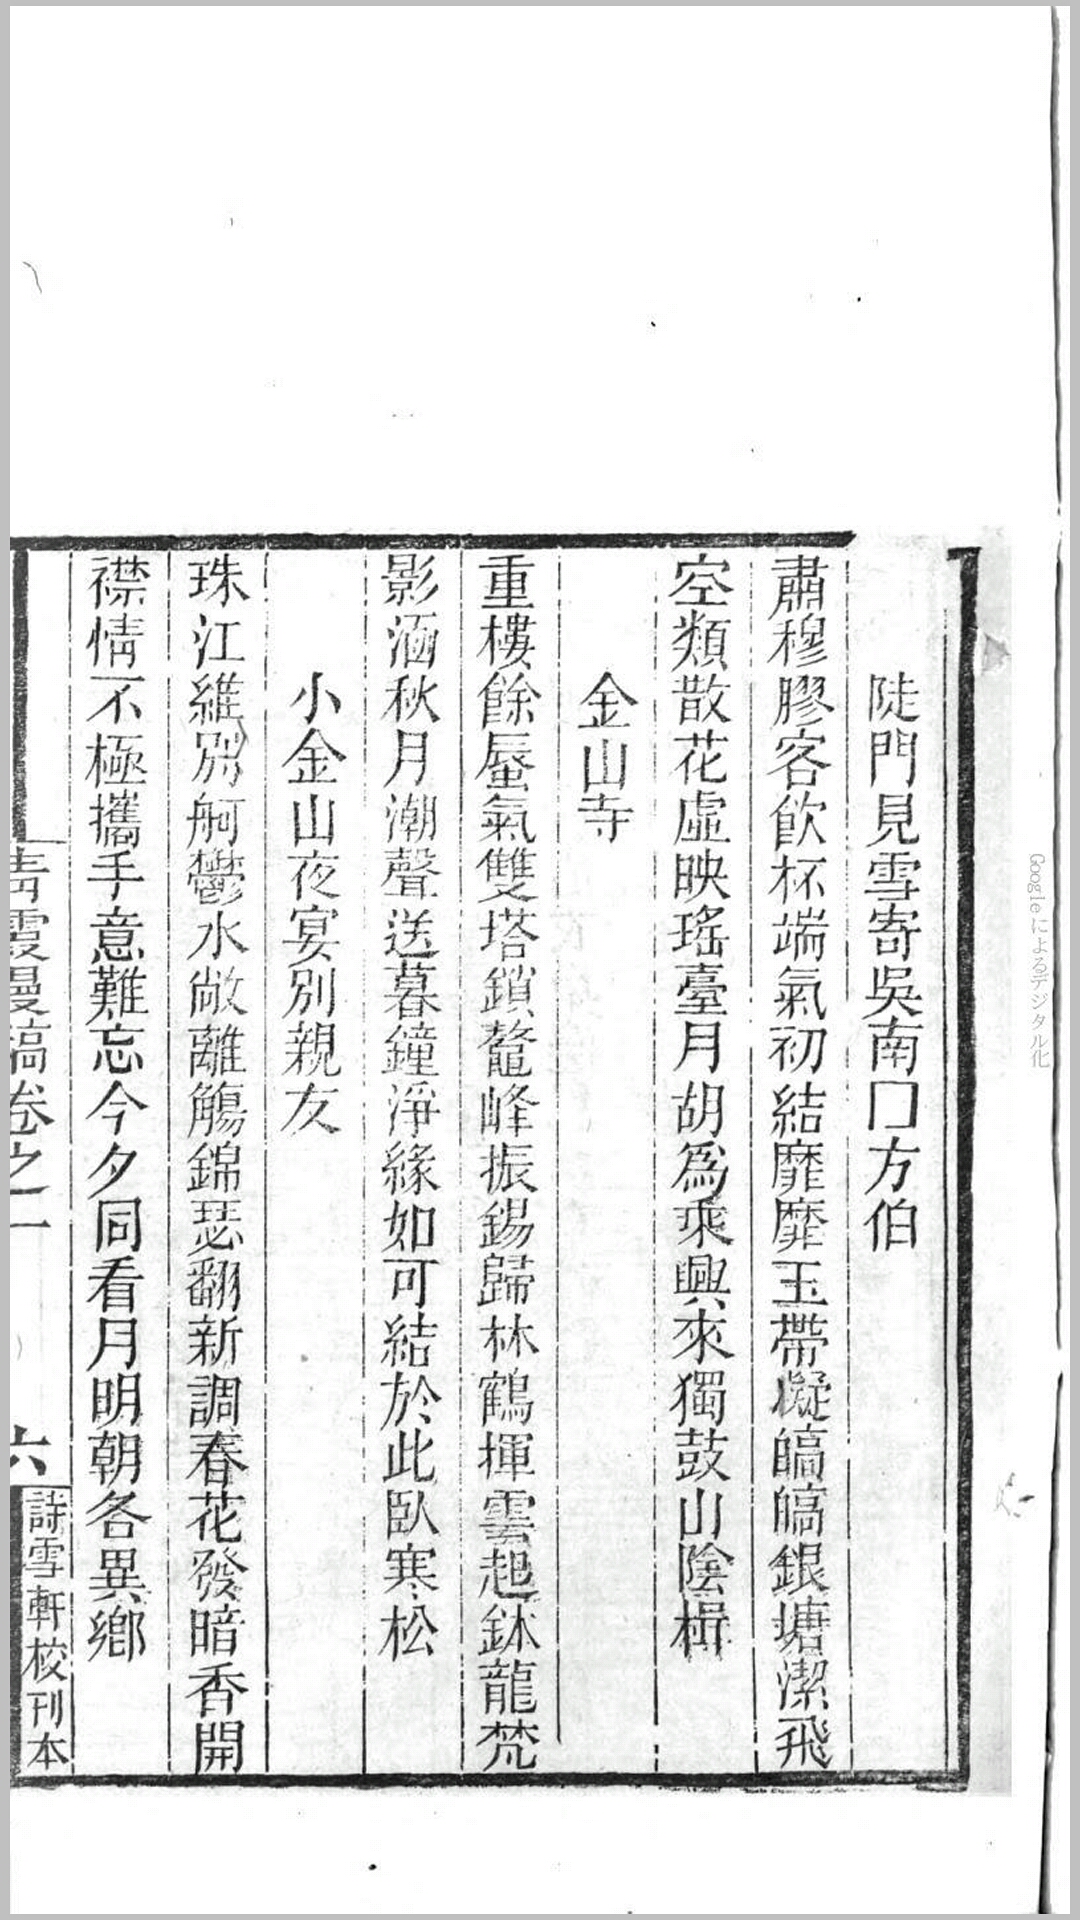 陡門見雪寄吳南囗方伯
肅穆膠客飲杯端氣初結靡靡玉帶凝皜皜銀塘潔飛
空類散花虛映瑤臺月胡為乘興來獨鼓山陰楫
金山寺
重樓餘蜃氣雙塔鎖鼇峰振錫歸林鶴揮雲起鉢龍梵
影涵秋月潮聲送暮鐘淨緣如可結於此臥寒松
小金山夜宴別親友
珠江維別舸鬱水敞離觴錦瑟翻新調春花發暗香開
襟情不極攜手意難忘今夕同看月明朝各異鄉
青霞漫稿卷之一
六
詩雪軒校刊本
Google によるデジタル化